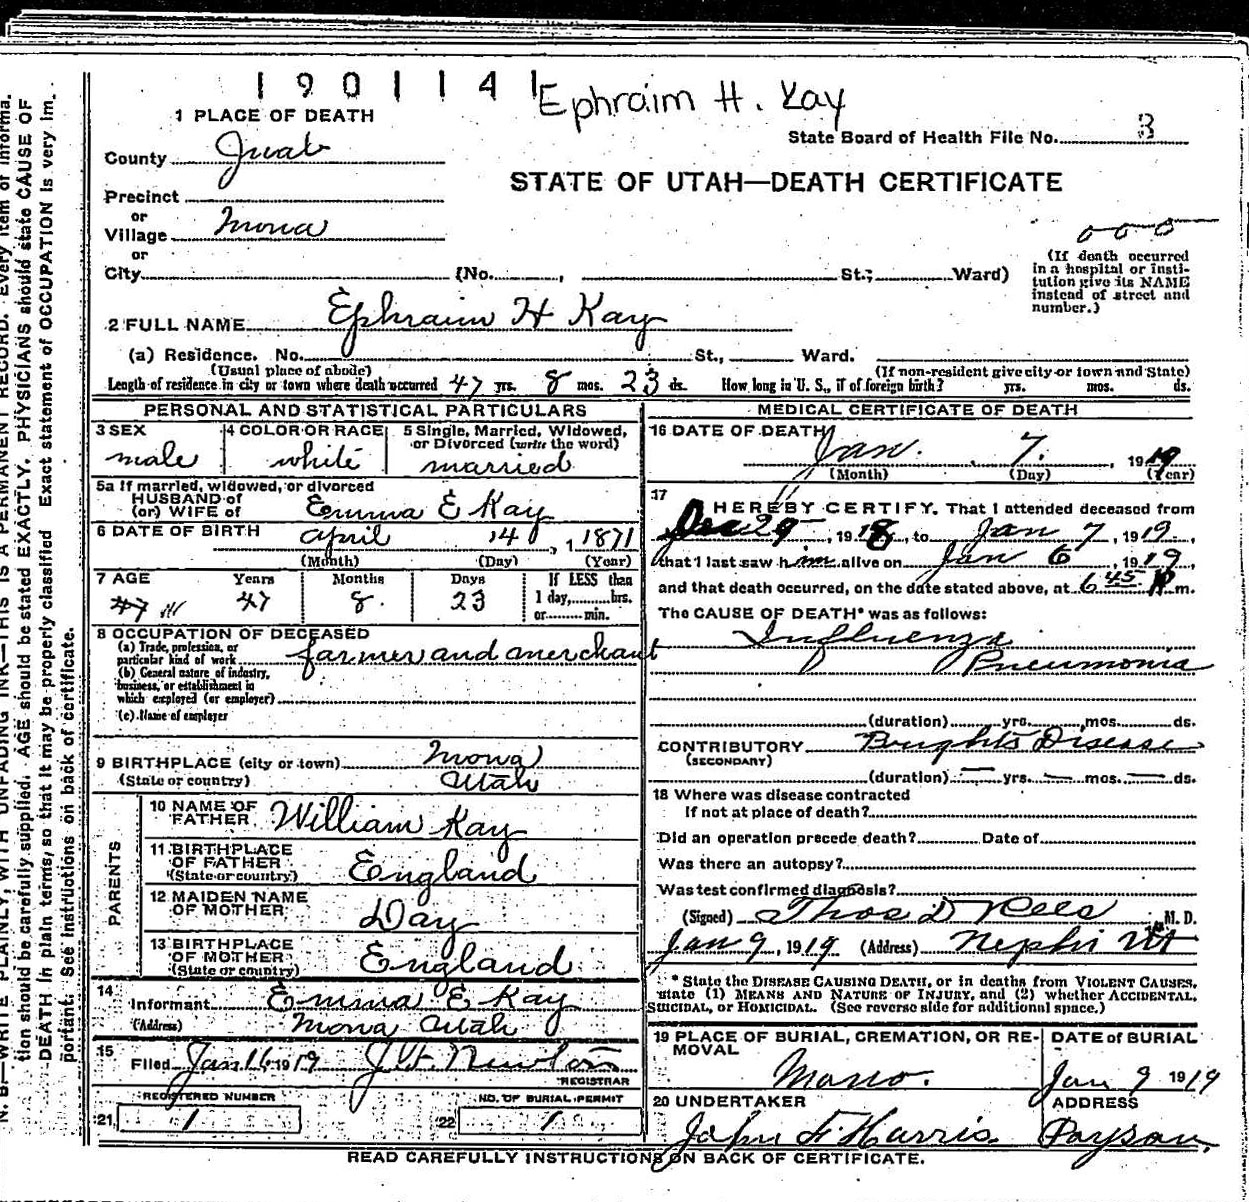 1901141 Ephraim H. Kay
1 PLACE OF DEATH
State Board of Health File No. 3
County Juab
STATE OF UTAH—DEATH CERTIFICATE
Precinct
or
Village Mona
or
City (No. , St.; Ward)
(If death occurred
in a hospital or insti-
tution give its NAME
instead of street and
number.)
2 FULL NAME Ephraim H Kay
(a) Residence. No. St., Ward.
(Usual place of abode) (If non-resident give city or town and State)
Length of residence in city or town where death occurred 47 yrs. 8 mos. 23 ds. How long in U. S., if of foreign birth? yrs. mos. ds.
PERSONAL AND STATISTICAL PARTICULARS
3 SEX 4 COLOR OR RACE 5 Single, Married, Widowed,
or Divorced (write the word)
male white married
5a If married, widowed, or divorced
HUSBAND of
(or) WIFE of Emma E Kay
6 DATE OF BIRTH April 14, 1871
(Month) (Day) (Year)
7 AGE Years Months Days If LESS than
1 day, hrs.
or min.
47 47 8. 23
8 OCCUPATION OF DECEASED
(a) Trade, profession, or
particular kind of work farmer and merchant
(b) General nature of industry,
business, or establishment in
which employed (or employer)
(c) Name of employer
9 BIRTHPLACE (city or town) Mona
(State or country) Utah
PARENTS
10 NAME OF
FATHER William Kay
11 BIRTHPLACE
OF FATHER England
(State or country)
12 MAIDEN NAME
OF MOTHER Day
13 BIRTHPLACE
OF MOTHER England
(State or country)
14
Informant Emma E Kay
(Address) Mona Utah
15
Filed Jan 16 1919 J. H. Newton
REGISTRAR
REGISTERED NUMBER NO. OF BURIAL PERMIT
21 1 22 1
MEDICAL CERTIFICATE OF DEATH
16 DATE OF DEATH
Jan. 7, 1919
(Month) (Day) (Year)
17
I HEREBY CERTIFY, That I attended deceased from
Dec 29, 1918, to Jan 7, 1919,
that I last saw him alive on Jan 6, 1919,
and that death occurred, on the date stated above, at 6 45 P m.
The CAUSE OF DEATH* was as follows:
Influenza
Pneumonia
(duration) yrs. mos. ds.
CONTRIBUTORY Brights Disease
(SECONDARY)
(duration) — yrs. — mos. — ds.
18 Where was disease contracted
If not at place of death?
Did an operation precede death? Date of
Was there an autopsy?
Was test confirmed diagnosis?
(Signed) Thos D Rees M. D.
Jan 9, 1919 (Address) Nephi Ut
* State the DISEASE CAUSING DEATH, or in deaths from VIOLENT CAUSES,
state (1) MEANS AND NATURE OF INJURY, and (2) whether ACCIDENTAL,
SUICIDAL, or HOMICIDAL. (See reverse side for additional space.)
19 PLACE OF BURIAL, CREMATION, OR RE-
MOVAL
DATE of BURIAL
Mano. Jan 9 1919
20 UNDERTAKER ADDRESS
John F. Harris Payson
READ CAREFULLY INSTRUCTIONS ON BACK OF CERTIFICATE.
N. B.—WRITE PLAINLY, WITH UNFADING INK—THIS IS A PERMANENT RECORD. Every item of informa-
tion should be carefully supplied. AGE should be stated EXACTLY. PHYSICIANS should state CAUSE OF
DEATH in plain terms, so that it may be properly classified. Exact statement of OCCUPATION is very im-
portant. See instructions on back of certificate.